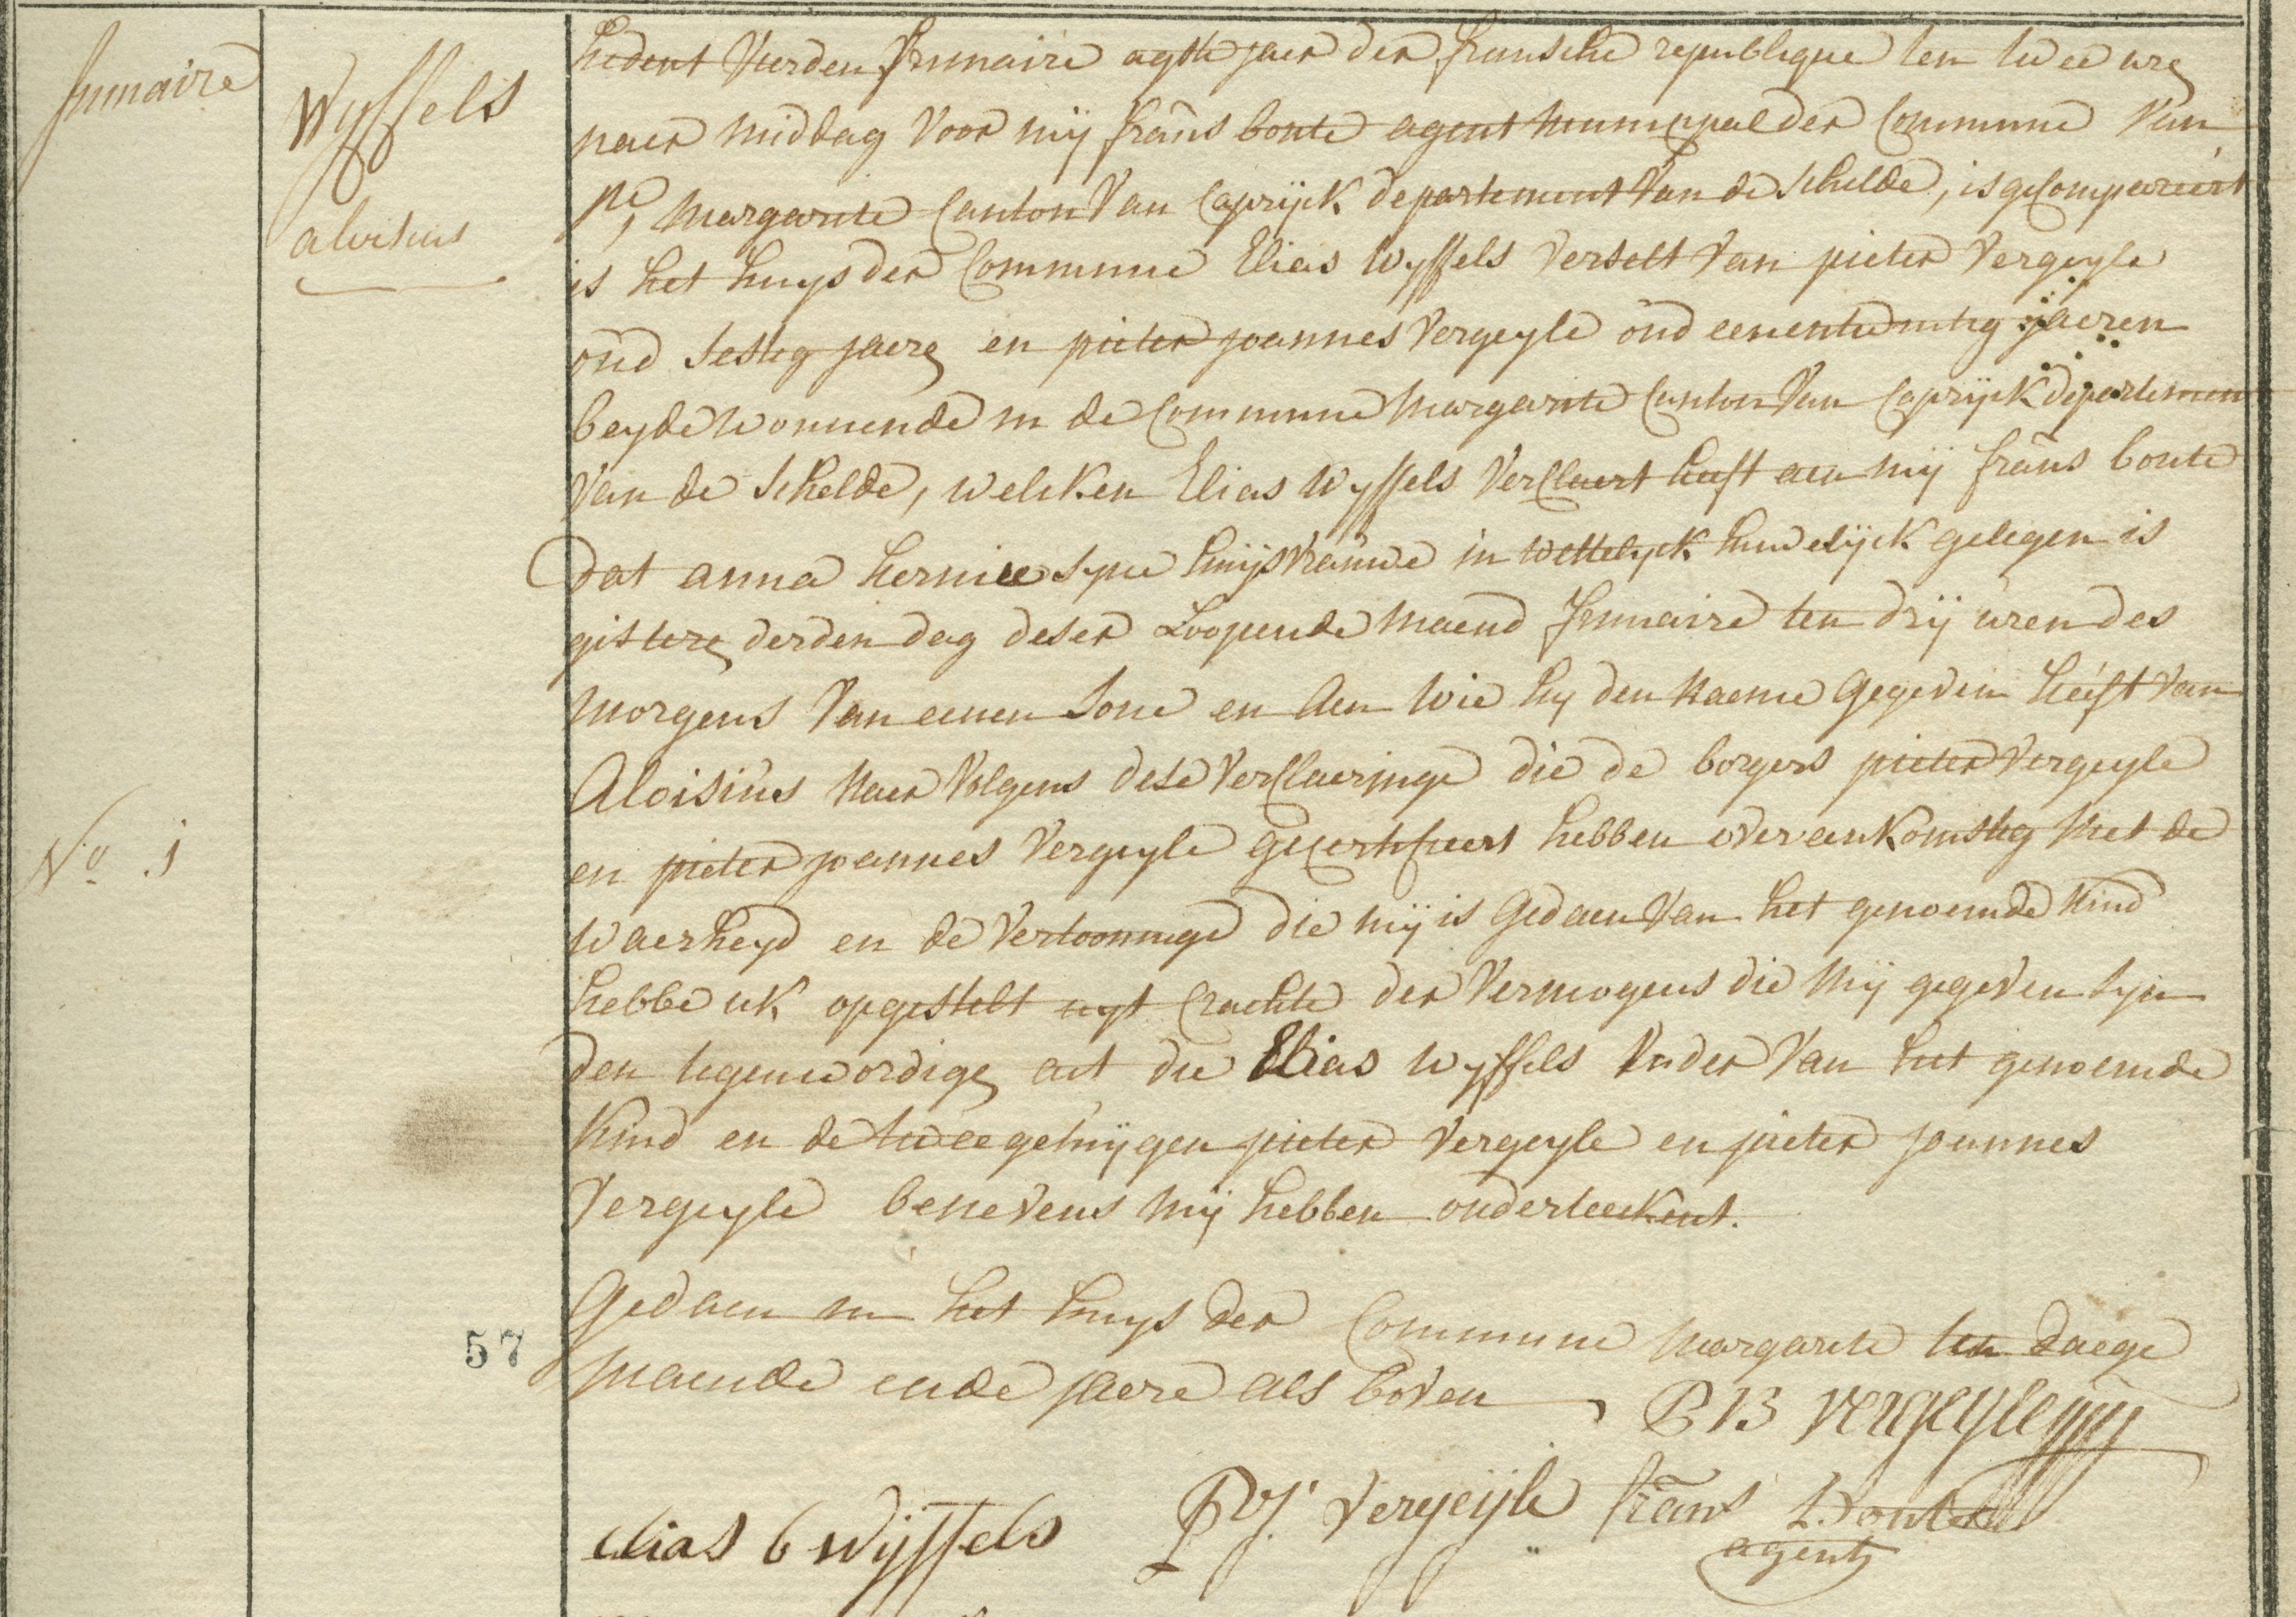 frimaire
Wyffels
aloisius
N.o 1
57
hedent vierden frimaire agtste jaer der fransche republique ten twee uren
naer middag voor mij frans bonte agent municipael der Commune van
Ste, margariete Canton van Caprijck departement van de schelde, is gecompareert
is het huys der Commune Elias Wyffels verselt van pieter vergeyle
oud sestig jaeren en pieter joannes vergeyle oud eenentwintig jaeren
beyde wonnende in de Commune margariete Canton van Caprijck departemen
van de schelde, welcken Elias Wyffels verclaert heeft aen mij frans bonte
dat anna hernie syne huijsvrauwe in wettelyck huwelijck gelegen is
gisteren derden dag deser loopende maend frimaire ten drij uren des
morgens van eenen sone en aen wie hy den naeme gegeven heeft van
Aloisius naer volgens dese verclaeringe die de borgers pieter vergeyle
en pieter joannes vergeyle gecertifieert hebben overeenkomstig met de
waerheyd en de vertooninge die mij is gedaen van het genoemde kind
hebbe ick opgestelt uyt crachte der vermogens die mij gegeven syn
den tegenwordigen act die Elias wyffels vader van het genoemde
kind en de twee getuijgen pieter vergeyle en pieter joannes
vergeyle benevens mij hebben onderteekent.
Gedaen in het huys der Commune margariete ten daege
maende ende jaere als boven
P B vergeyle
elias b wyffels P J. vergeijle frans bonte
agent